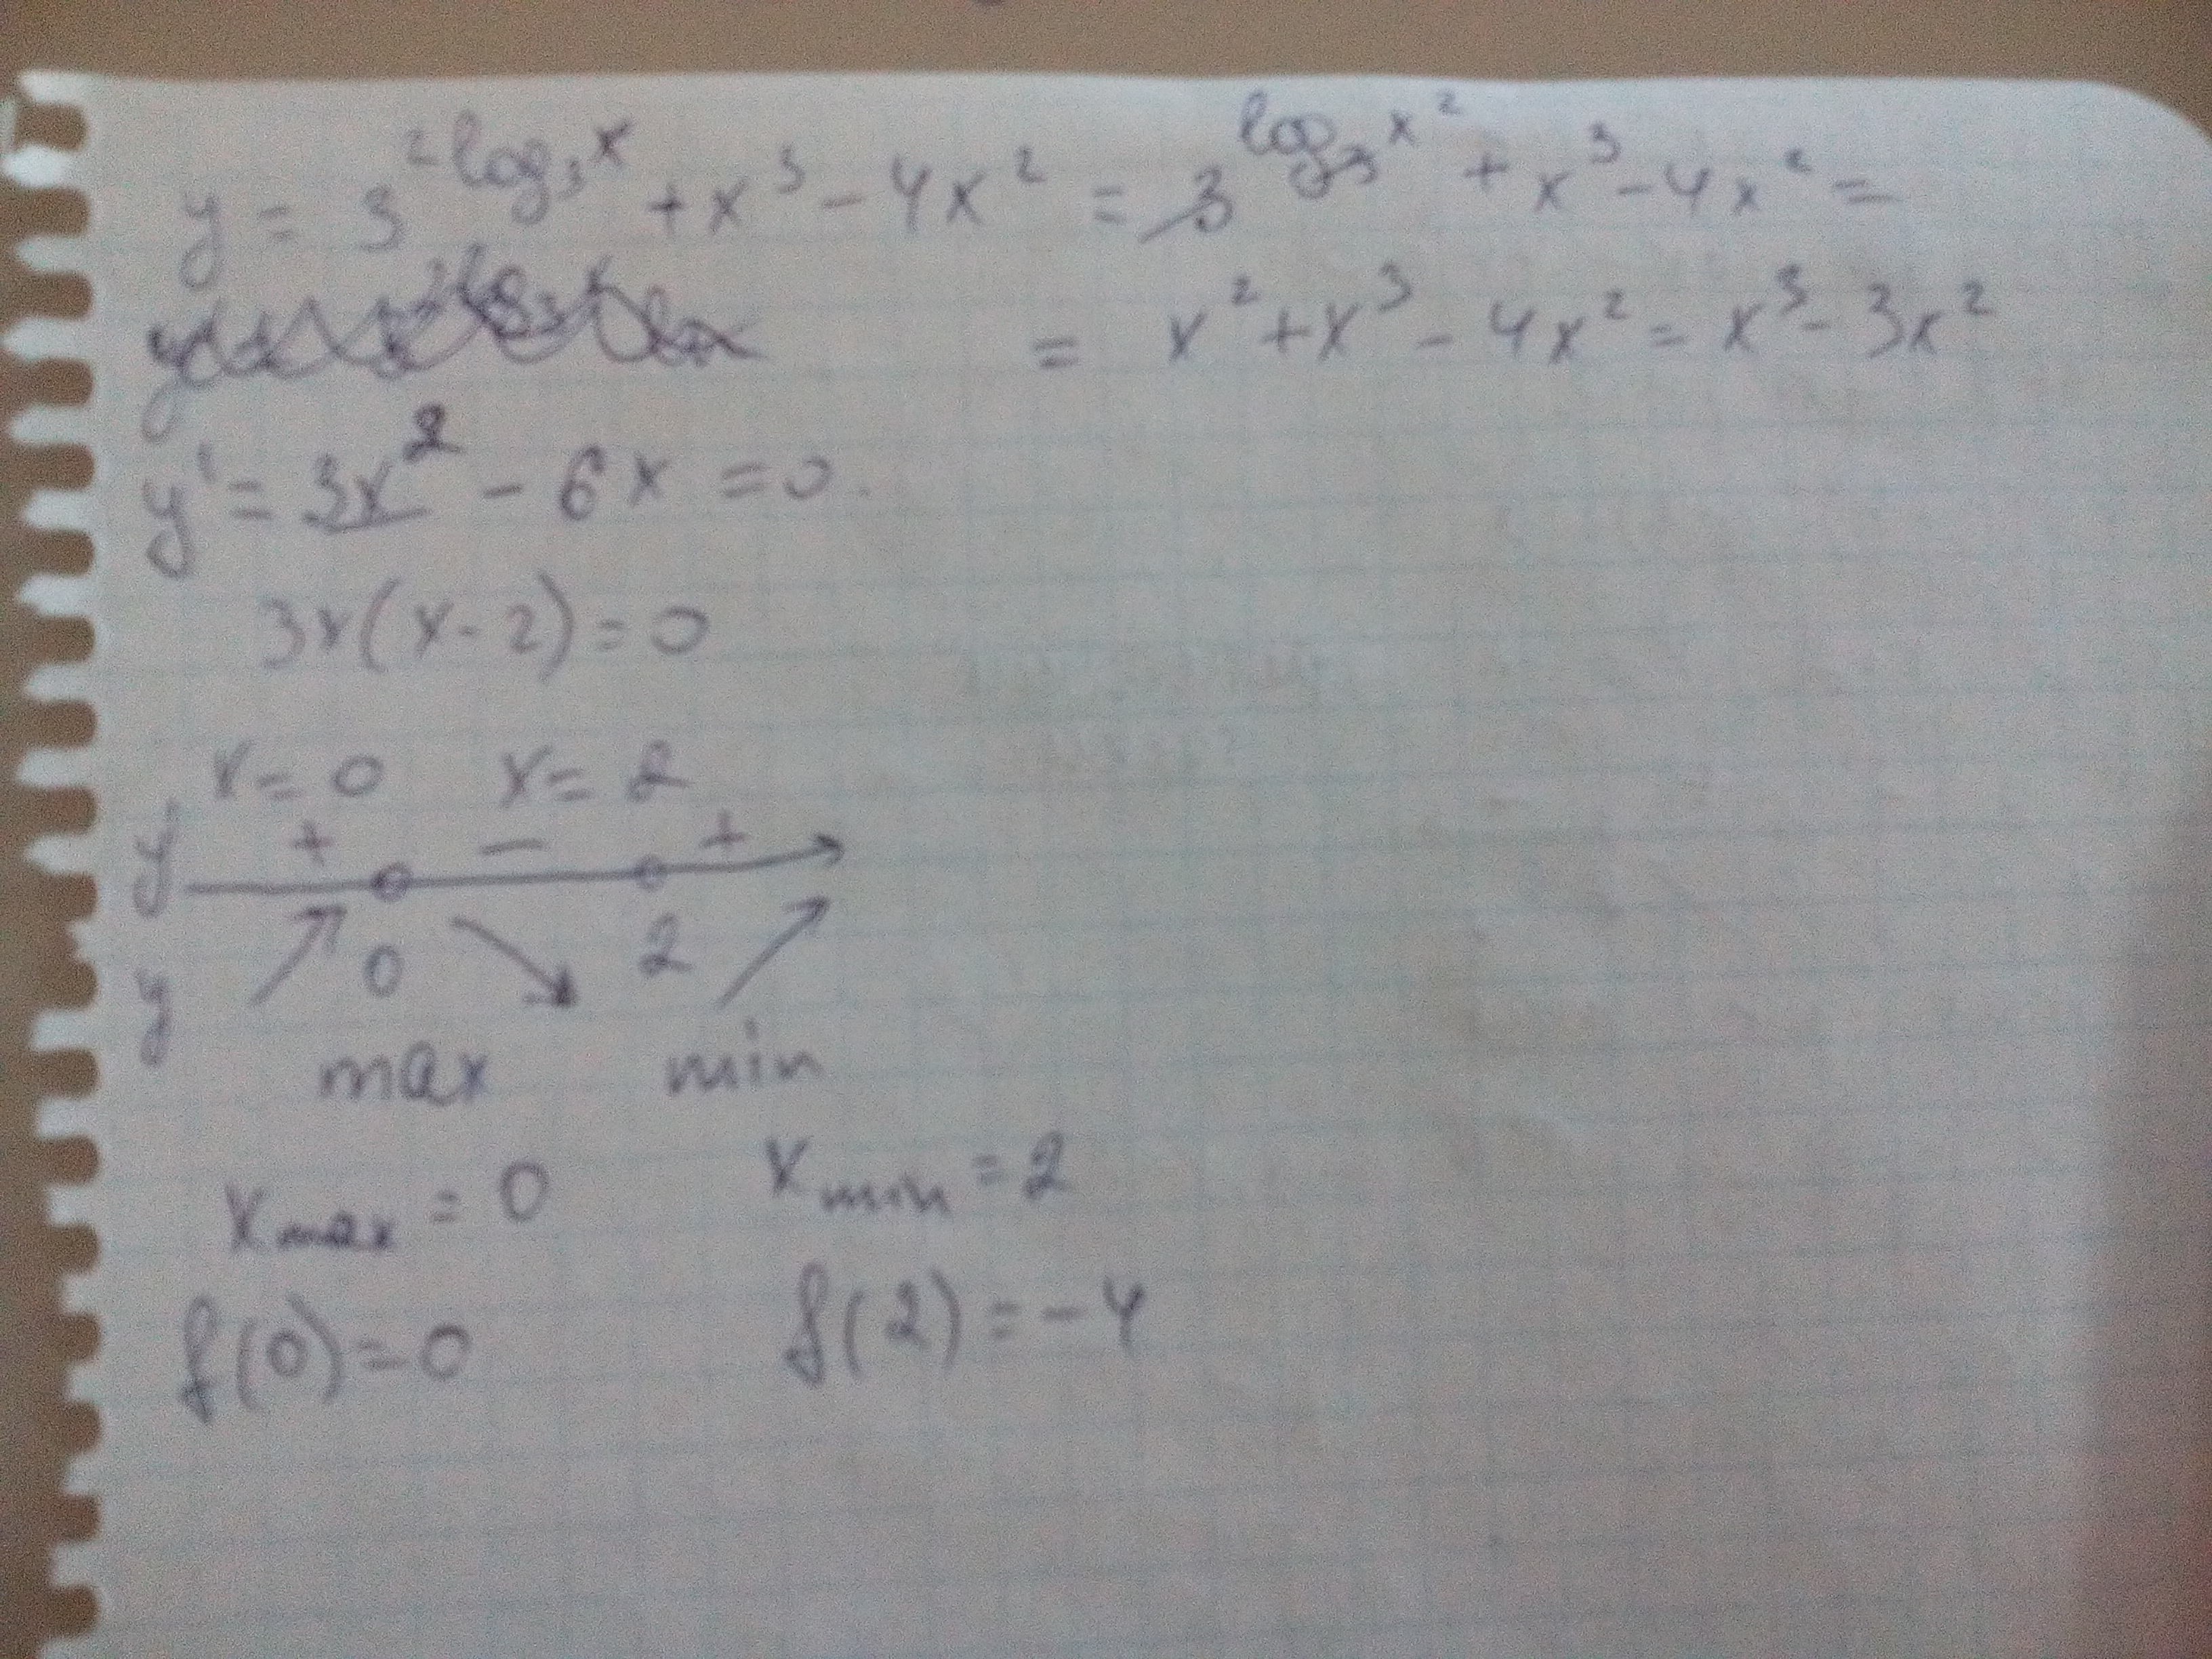 y = 3^{2log₃x} + x³ - 4x² = 3^{log₃x²} + x³ - 4x² =
= x² + x³ - 4x² = x³ - 3x²
y' = 3x² - 6x = 0.
3x(x-2) = 0
x = 0 x = 2
y' + - +
0 2
y
max min
x max = 0 x min = 2
f(0) = 0 f(2) = -4